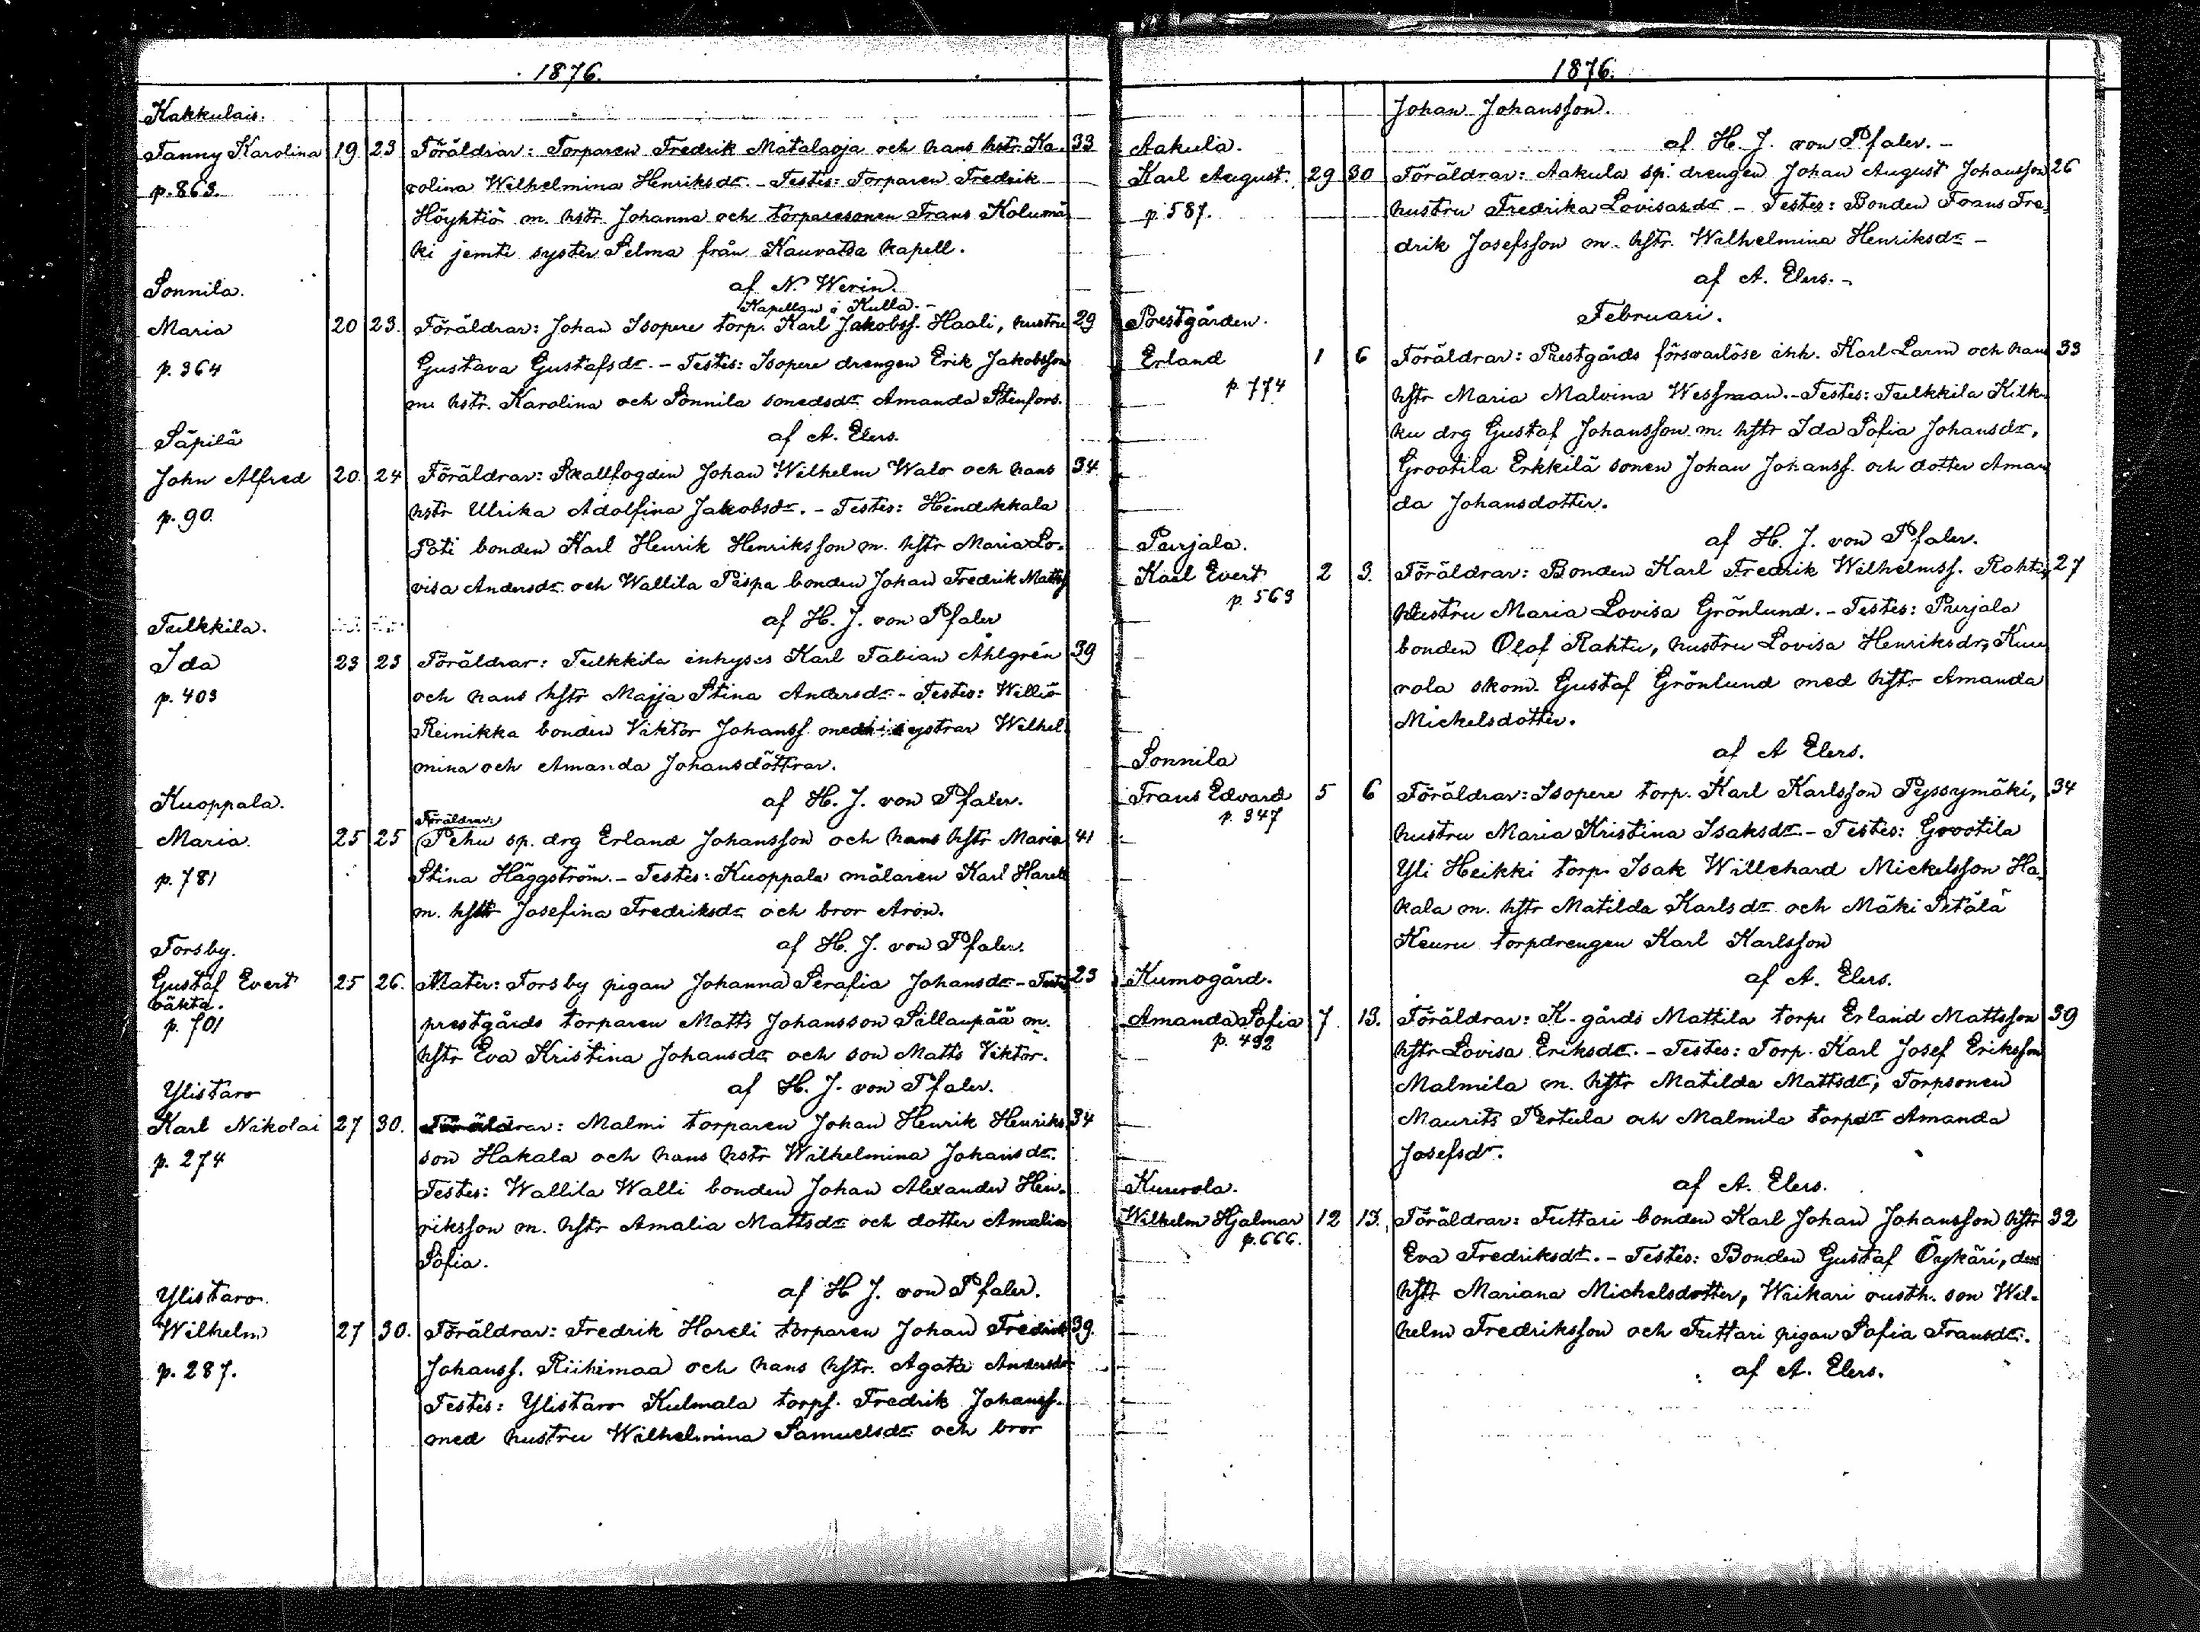 1876.
Kakkulais.
Fanny Karolina 19 23 Föräldrar: Torparen Fredrik Matalaoja och hans hstr. Ka- 33
p. 863. rolina Wilhelmina Henriksdr. – Testes: Torparen Fredrik
Höyktiö m. hstr. Johanna och torparesonen Frans Kolumä
ki jemte syster Selma från Kauvatsa kapell.
Sonnila. af N. Werin.
Kapellan i Kulla. –
Maria 20 23. Föräldrar: Johan Isopere torp. Karl Jakobsf. Haali, hustru 29
p. 364 Gustava Gustafsdr. – Testes: Isopere drengen Erik Jakobsson
m. hstr. Karolina och Sonnila sonedsdr Amanda Stenfors.
Säpilä af A. Elers.
John Alfred 20. 24 Föräldrar: Skallfogden Johan Wilhelm Walo och hans 34.
p. 90. hstr Ulrika Adolfina Jakobsdr. – Testes: Hindikkala
Poti bonden Karl Henrik Henriksson m. hstr Maria Lo-
visa Andersdr och Wallila Pispa bonden Johan Fredrik Mattsf
Tulkkila. af H. J. von Pfaler
Ida 23 23 Föräldrar: Tulkkila inhyses Karl Fabian Åhlgrén 39
p. 403 och hans hstr Maija Stina Andersdr – Testes: Williö
Reinikka bonden Viktor Johansf. med systrar Wilhel
mina och Amanda Johansdöttrar.
Kuoppala. af H. J. von Pfaler.
Föräldrar:
Maria. 25 25 Pehu sp. drg Erland Johansson och hans hstr Maria 41
p. 781 Stina Häggström. – Testes: Kuoppala målaren Karl Harell
m. hstr Josefina Fredriksdr och bror Aron.
Forsby. af H. J. von Pfaler.
Gustaf Evert 25 26. Mater: Forsby pigan Johanna Serafia Johansdr – Testes 23
oäkta.
p. 701 prestgårds torparen Matts Johansson Sällanpää m.
hstr Eva Kristina Johansdr och son Matts Viktor.
Ylistaro af H. J. von Pfaler.
Karl Nikolai 27 30. Föräldrar: Malmi torparen Johan Henrik Henriks 34
p. 274 son Hakala och hans hstr Wilhelmina Johansdr.
Testes: Wallila Walli bonden Johan Alexander Hen-
riksson m. hstr Amalia Mattsdr och dotter Amalia
Sofia.
Ylistaro. af H J. von Pfaler.
Wilhelm 27 30. Föräldrar: Fredrik Horeli torparen Johan Fredrik 39.
p. 287. Johansf. Riihimaa och hans hstr. Agata Andersdr
Testes: Ylistaro Kulmala torpf. Fredrik Johansf.
med hustru Wilhelmina Samuelsdr och bror
1876.
Johan Johansson.
Aakula. af H. J. von Pfaler. –
Karl August. 29 30 Föräldrar: Aakula sp. drengen Johan August Johansson 26
p. 587. hustru Fredrika Lovisasdr – Testes: Bonden Frans Fre-
drik Josefsson m. hstr. Wilhelmina Henriksdr –
af A. Elers. –
Prestgården. Februari.
Erland 1 6 Föräldrar: Prestgårds försvarlöse inh. Karl Larm och hans 33
p. 774 hstr Maria Malvina Wessman. – Testes: Tulkkila Kilk-
ku drg Gustaf Johansson m. hstr Ida Sofia Johansdr,
Grootila Erkkilä sonen Johan Johansf. och dotter Aman
da Johansdotter.
Purjala. af H. J. von Pfaler.
Karl Evert 2 3. Föräldrar: Bonden Karl Fredrik Wilhelmsf. Rahtu, 27
p. 563 hustru Maria Lovisa Grönlund. – Testes: Purjala
bonden Olof Rahtu, hustru Lovisa Henriksdr, Kuu
rola skom. Gustaf Grönlund med hstr Amanda
Mickelsdotter.
Sonnila af A Elers.
Frans Edvard 5 6 Föräldrar: Isopere torp. Karl Karlsson Pyssymäki, 34
p. 347 hustru Maria Kristina Isaksdr – Testes: Grootila
Yli Heikki torp. Isak Willehard Mickelsson Ha-
kala m. hstr Matilda Karlsdr och Mäki Setälä
Keuru torpdrengen Karl Karlsson
Kumogård. af A. Elers.
Amanda Sofia 7. 13. Föräldrar: K-gårds Mattila torp. Erland Mattsson 39
p. 492 hstr Lovisa Eriksdr. – Testes: Torp. Karl Josef Eriksson
Malmila m. hstr Matilda Mattsdr, Torpsonen
Maurits Pertula och Malmila torpdr Amanda
Josefsdr.
Kuurola. af A. Elers.
Wilhelm Hjalmar 12 13. Föräldrar: Tuttari bonden Karl Johan Johansson hstr 32
p. 666. Eva Fredriksdr. – Testes: Bonden Gustaf Öykäri, dess
hstr Mariana Michelsdotter, Waikari rusth. son Wil-
helm Fredriksson och Tuttari pigan Sofia Fransdr.
af A. Elers.